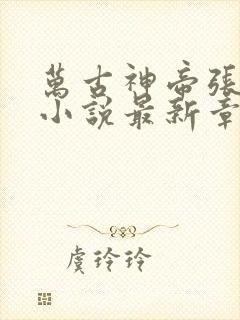 萬古神帝張
小說最新章
虞玲玲